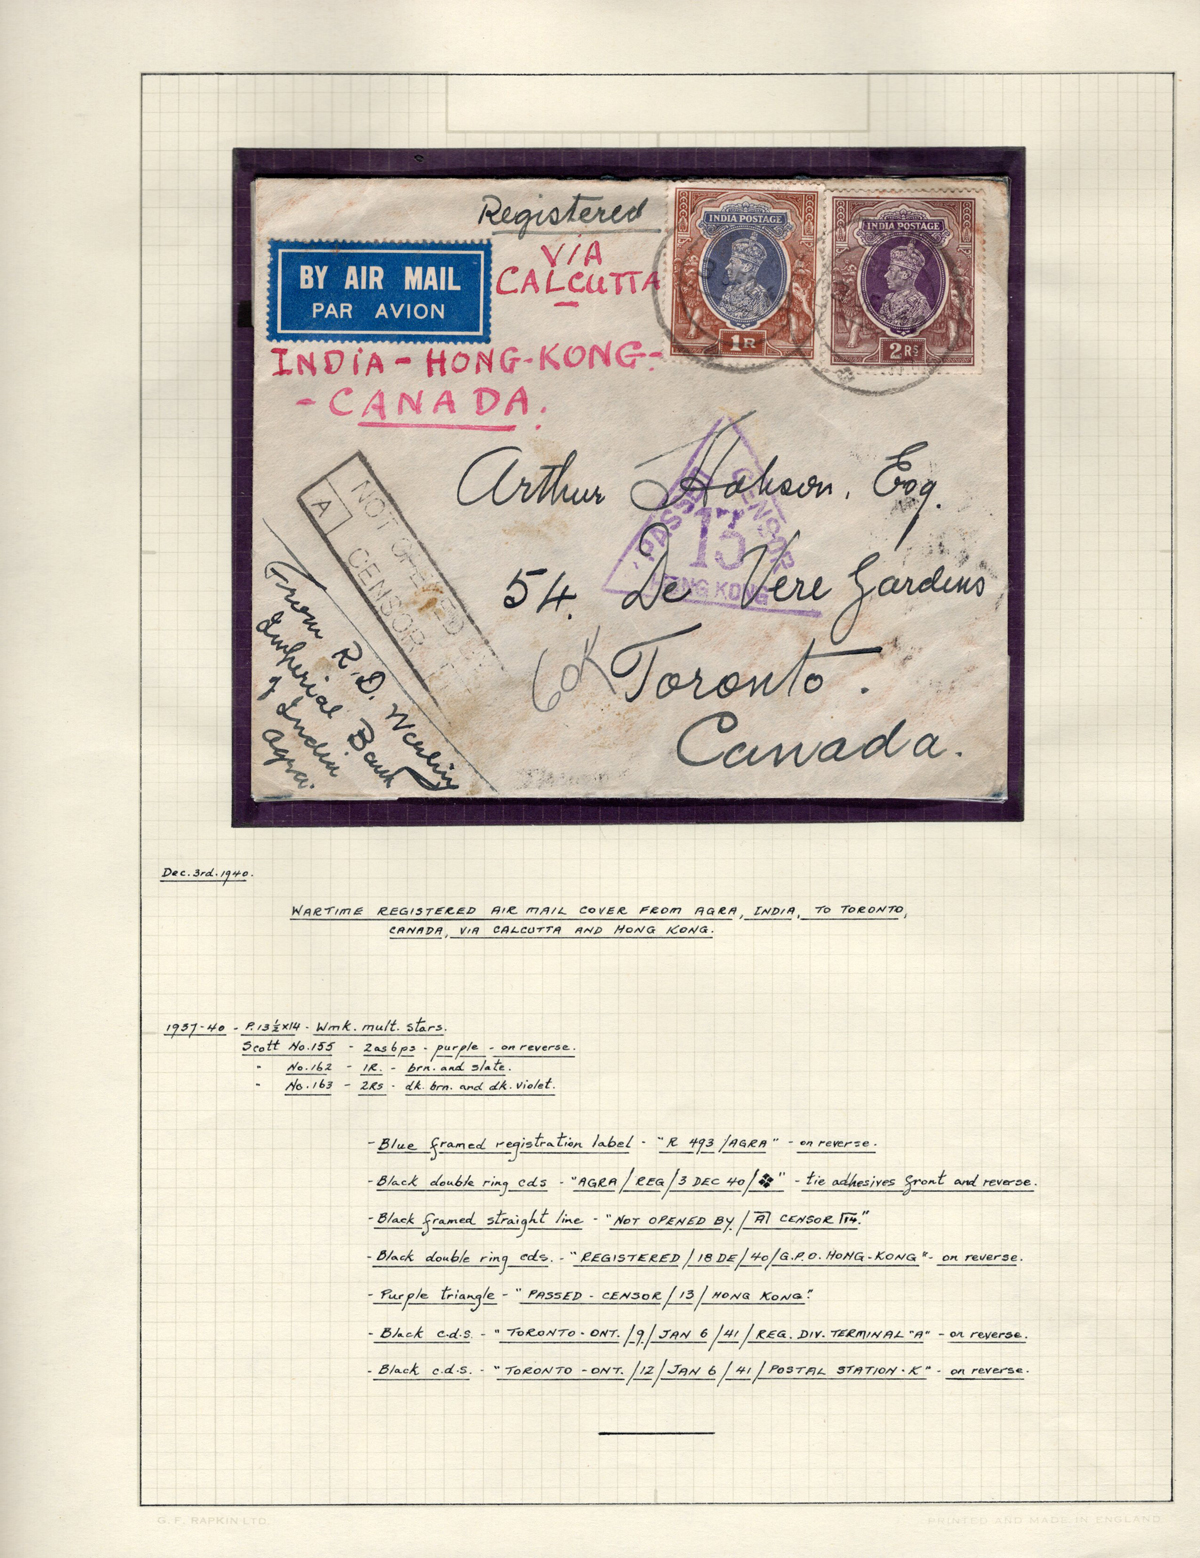 Registered
VIA
CALCUTTA
BY AIR MAIL
PAR AVION
INDIA POSTAGE
1R
INDIA POSTAGE
2Rs
INDIA - HONG-KONG-
- CANADA.
Arthur Hobson, Esq.
54. De Vere Gardens
Toronto.
Canada.
PASSED CENSOR
13
HONG KONG
A
NOT OPENED BY
CENSOR
60K
From R.D.
Imperial Bank
of India
Agra.
Dec. 3rd. 1940.
WARTIME REGISTERED AIR MAIL COVER FROM AGRA, INDIA, TO TORONTO,
CANADA, VIA CALCUTTA AND HONG KONG.
1937-40 - P.13½x14 - Wmk. mult. stars.
Scott No.155 - 2as6ps - purple - on reverse.
" No.162 - 1R. - brn. and slate.
" No.163 - 2Rs - dk. brn. and dk. violet.
- Blue framed registration label - "R 493 / AGRA" - on reverse.
- Black double ring cds - "AGRA / REG / 3 DEC 40 / ❖" - tie adhesives front and reverse.
- Black framed straight line - "NOT OPENED BY / A CENSOR 14."
- Black double ring cds. - "REGISTERED / 18 DE / 40 / G.P.O. HONG-KONG" - on reverse.
- Purple triangle - "PASSED - CENSOR / 13 / HONG KONG."
- Black c.d.s. - "TORONTO - ONT. / 9 / JAN 6 / 41 / REG. DIV. TERMINAL "A" - on reverse.
- Black c.d.s. - "TORONTO - ONT. / 12 / JAN 6 / 41 / POSTAL STATION - K" - on reverse.
G. F. RAPKIN LTD.
PRINTED AND MADE IN ENGLAND